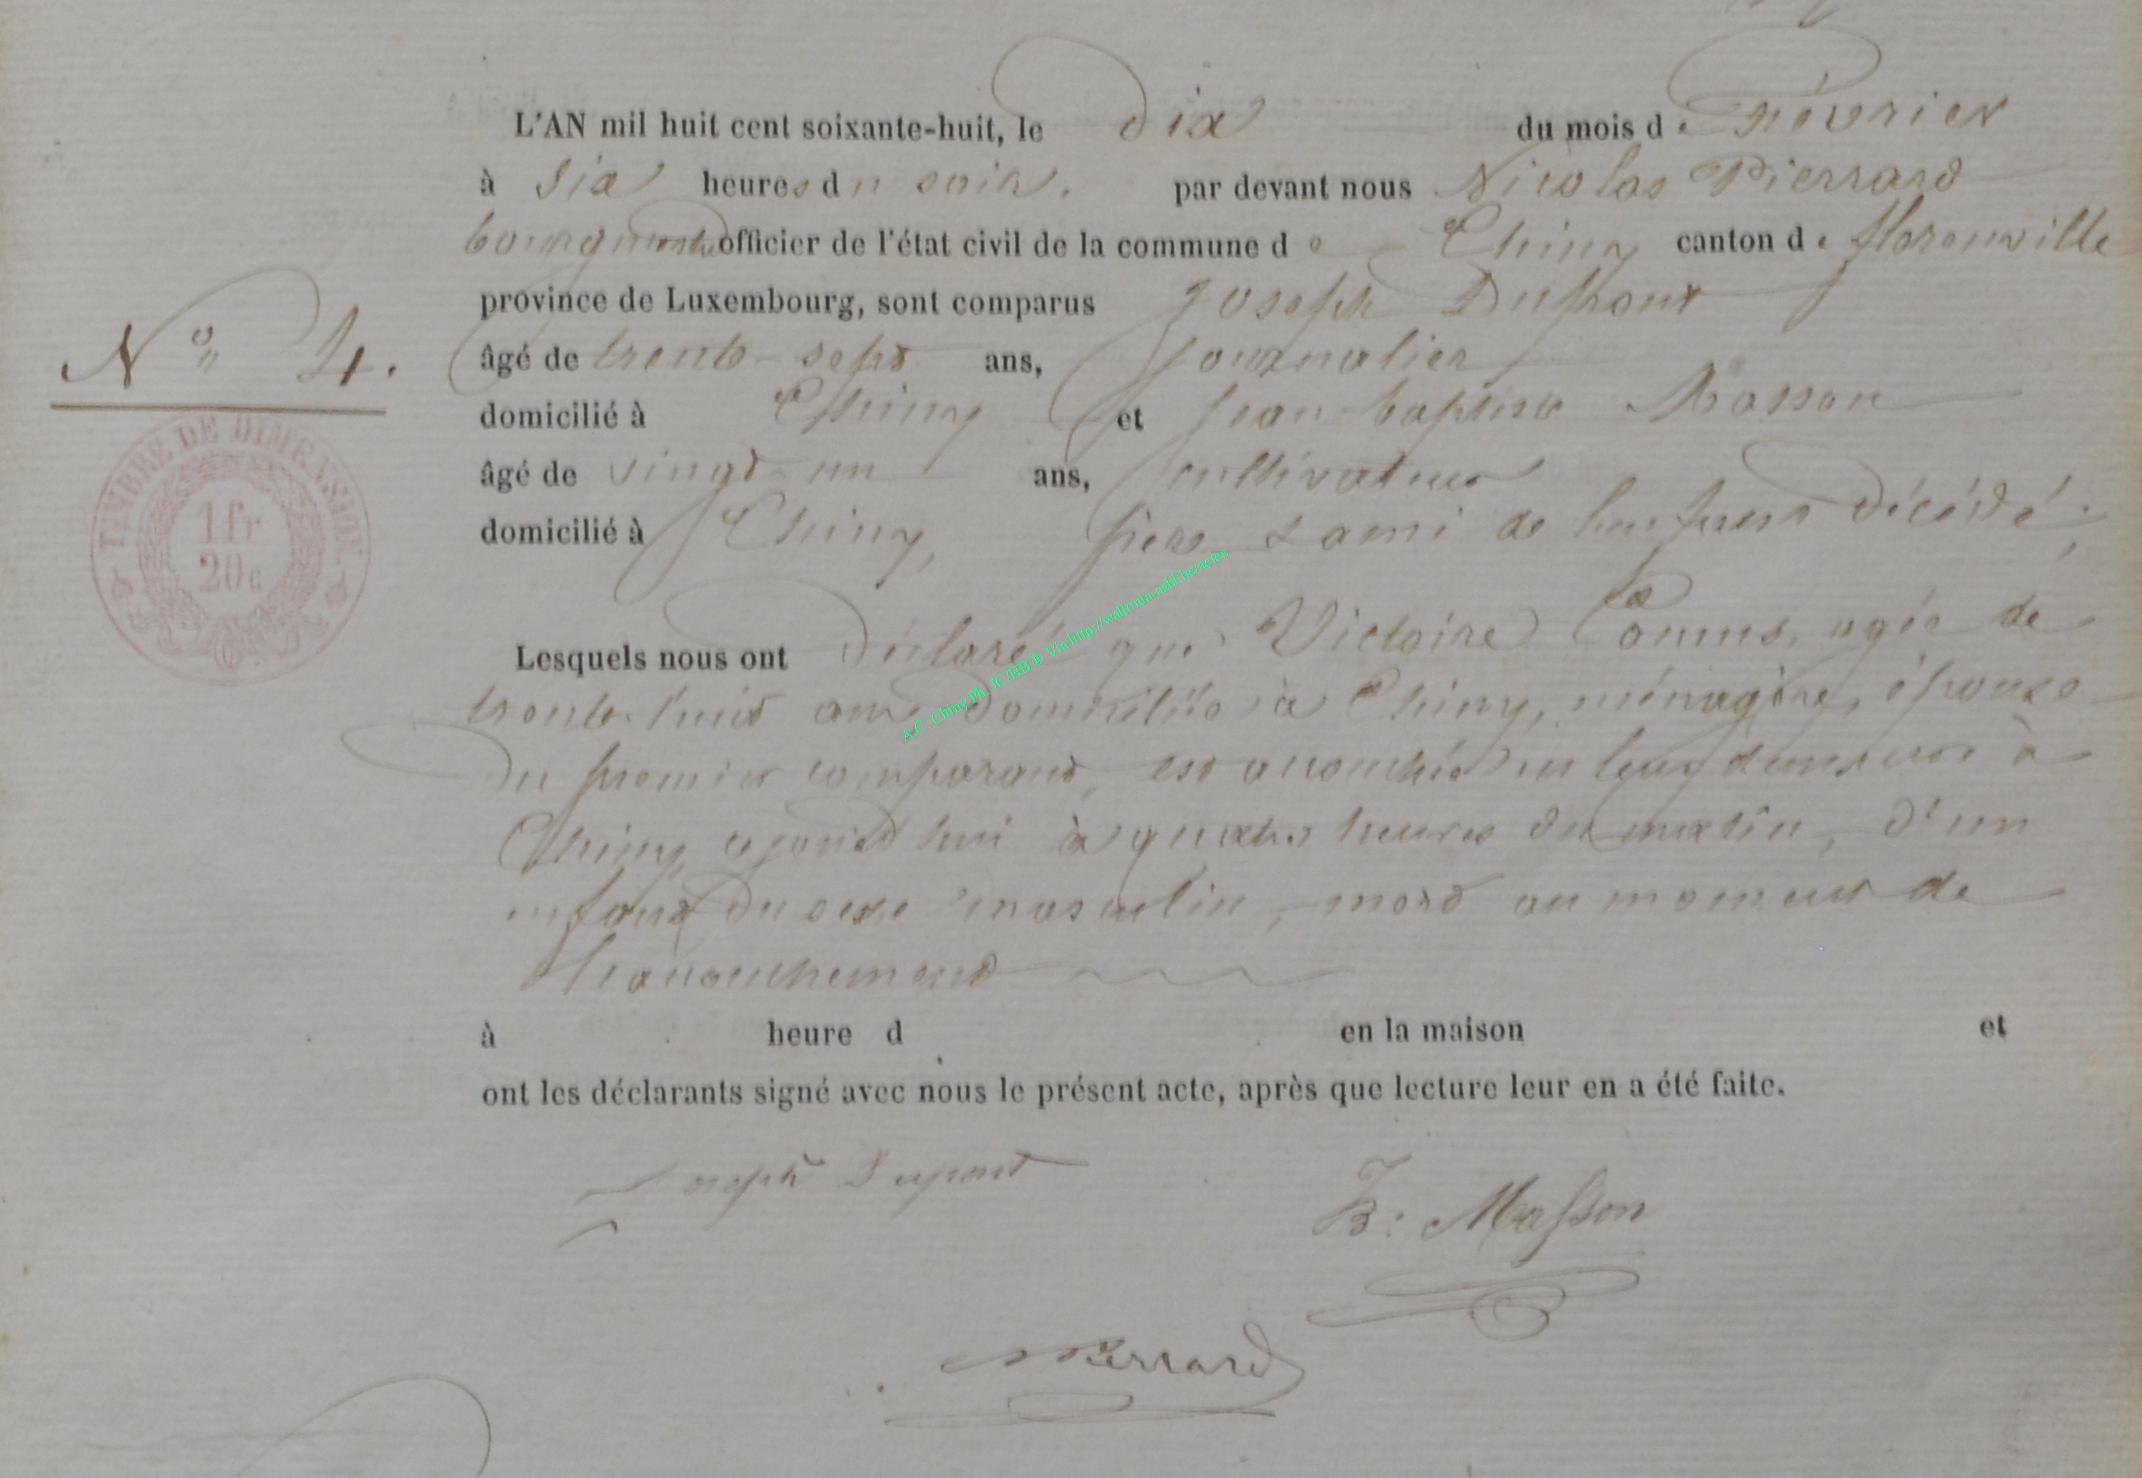 L'AN mil huit cent soixante-huit, le dix du mois de Février
à six heures du soir. par devant nous Nicolas Pierrard
bourgmestre officier de l'état civil de la commune de Chiny canton de florenville
province de Luxembourg, sont comparus Joseph Dupont
N° 4. âgé de trente-sept ans, journalier
domicilié à Chiny et Jean baptiste Masson
âgé de vingt-un ans, cultivateur
domicilié à Chiny, père & ami de décédé;
TIMBRE DE DIMENSION.
1 fr
20 c
Lesquels nous ont déclaré que Victoire agée de
trente-huit ans domiciliée à Chiny, ménagère, épouse
du premier comparant, est accouchée en leur demeure à
Chiny, cejourd'hui à quatre heures du matin, d'un
enfant du sexe masculin, mort au moment de
l'accouchement
à heure d en la maison et
ont les déclarants signé avec nous le présent acte, après que lecture leur en a été faite.
Joseph Dupont
J B: Masson
N Pierrard
A.C. Chiny Ph. JC/HB Via http://wallonia.asbl.be/actes